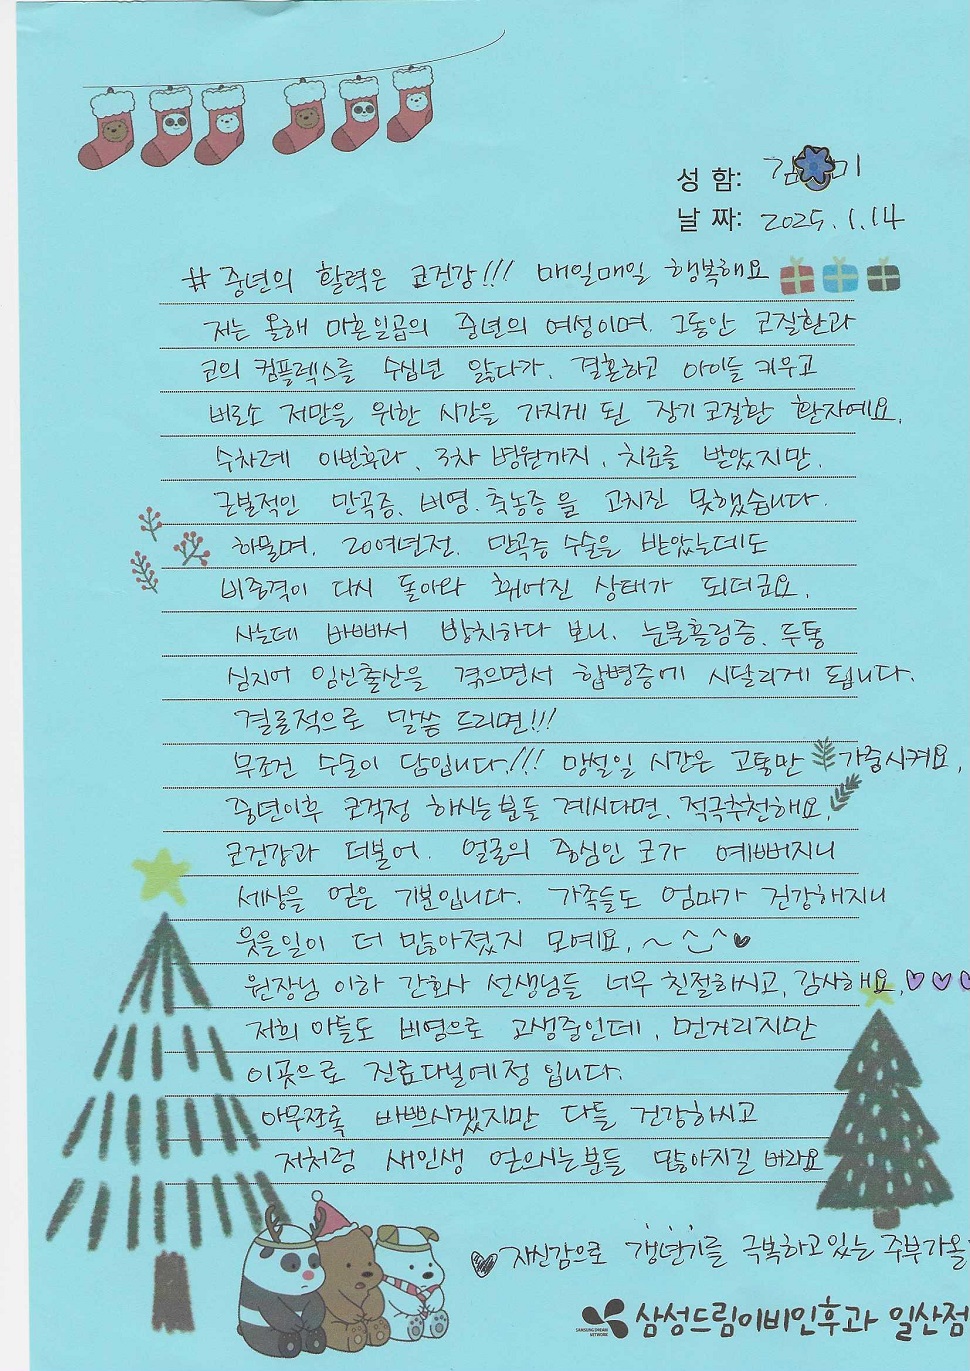 성 함: 김 미
날 짜: 2025. 1. 14
# 중년의 활력은 코건강!!! 매일매일 행복해요
저는 올해 마흔일곱의 중년의 여성이며. 그동안 코질환과
코의 컴플렉스를 수십년 앓다가. 결혼하고 아이들 키우고
비로소 저만을 위한 시간을 가지게 된 장기코질환 환자예요.
수차례 이빈후과, 3차 병원까지, 치료를 받았지만.
근본적인 만곡증, 비염. 축농증을 고치진 못했습니다.
하물며. 20여년전. 만곡증 수술은 받았는데도
비중격이 다시 돌아와 휘어진 상태가 되더군요.
사는데 바빠서 방치하다 보니. 눈물흘림증. 두통
심지어 임신출산을 겪으면서 합병증에 시달리게 됩니다.
결론적으로 말씀 드리면!!!
무조건 수술이 답입니다!!! 망설일 시간은 고통만 가중시켜요,
중년이후 코걱정 하시는분들 계시다면. 적극추천해요.
코건강과 더불어. 얼굴의 중심인 코가 예뻐지니
세상을 얻은 기분입니다. 가족들도 엄마가 건강해지니
웃을일이 더 많아졌지 모예요. ~ ^‿^ ♥
원장님 이하 간호사 선생님들 너무 친절하시고, 감사해요. ♡♡♡
저희 아들도 비염으로 고생중인데, 먼거리지만
이곳으로 진료다닐예정 입니다.
아무쪼록 바쁘시겠지만 다들 건강하시고
저처럼 새인생 얻으시는분들 많아지길 바라요
♥ 자신감으로 갱년기를 극복하고있는 주부가올
SAMSUNG DREAM NETWORK 삼성드림이비인후과 일산점